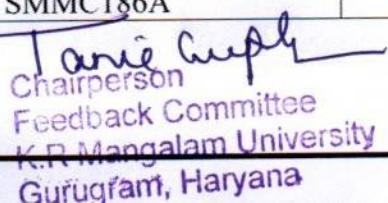 SMMC186A
Tanie Gupta
Chairperson
Feedback Committee
K.R Mangalam University
Gurugram, Haryana